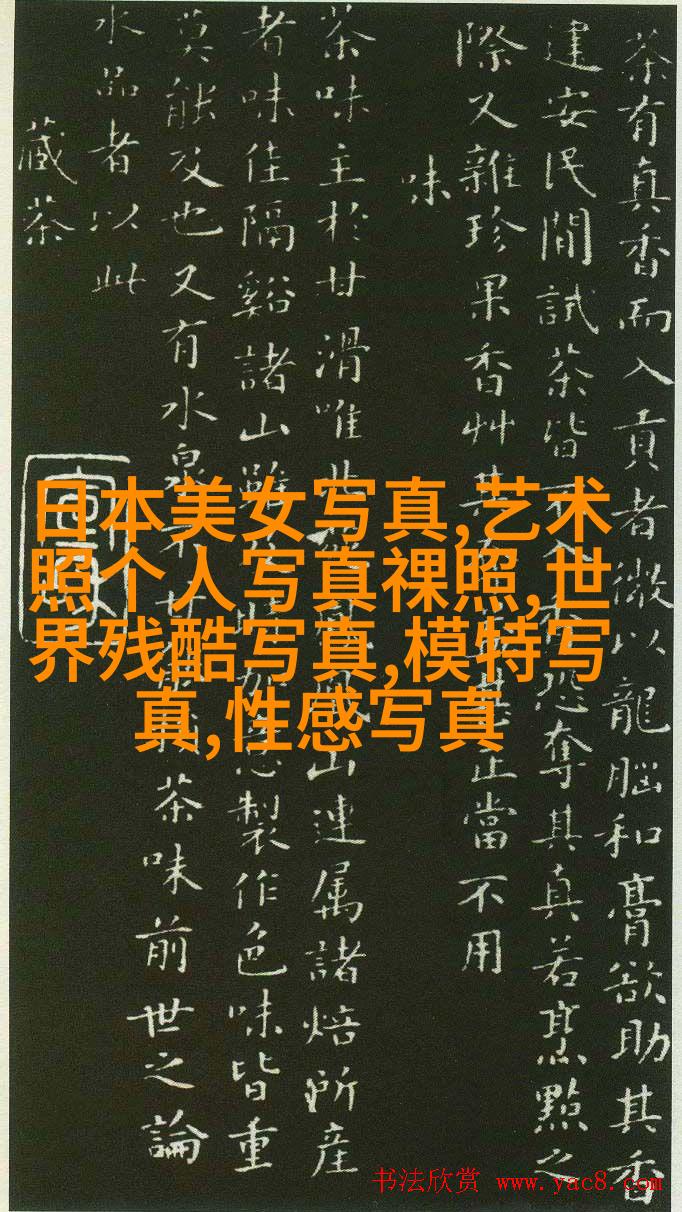 茶有真香而入貢者微以龍腦和膏欲助其香
建安民間試茶皆不入香恐奪其真若烹點之
際又雜珍果香艸其正當不用
味
茶味主於甘滑唯北山連属諸焙所產
者味佳隔谿諸山雖製作色味皆重
莫能及也又有水泉不甘茶味前世之論
水品者以此
藏茶
日本美女写真,艺术
照个人写真祼照,世
界残酷写真,模特写
真,性感写真
书法欣赏 www.yac8.com